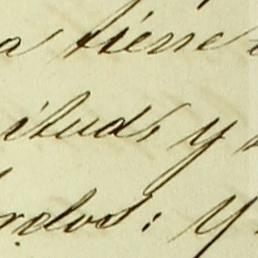 a tiene
itud, y
rdos: Y